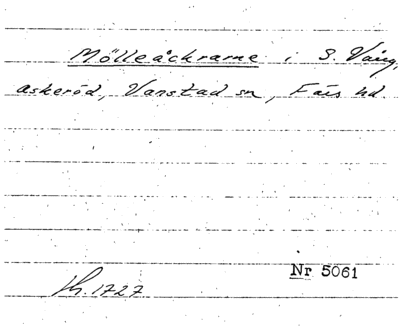 Mölleåckrarne i S. Väng,
askeröd, Vanstad sn, Färs hd.
Nr 5061
1727